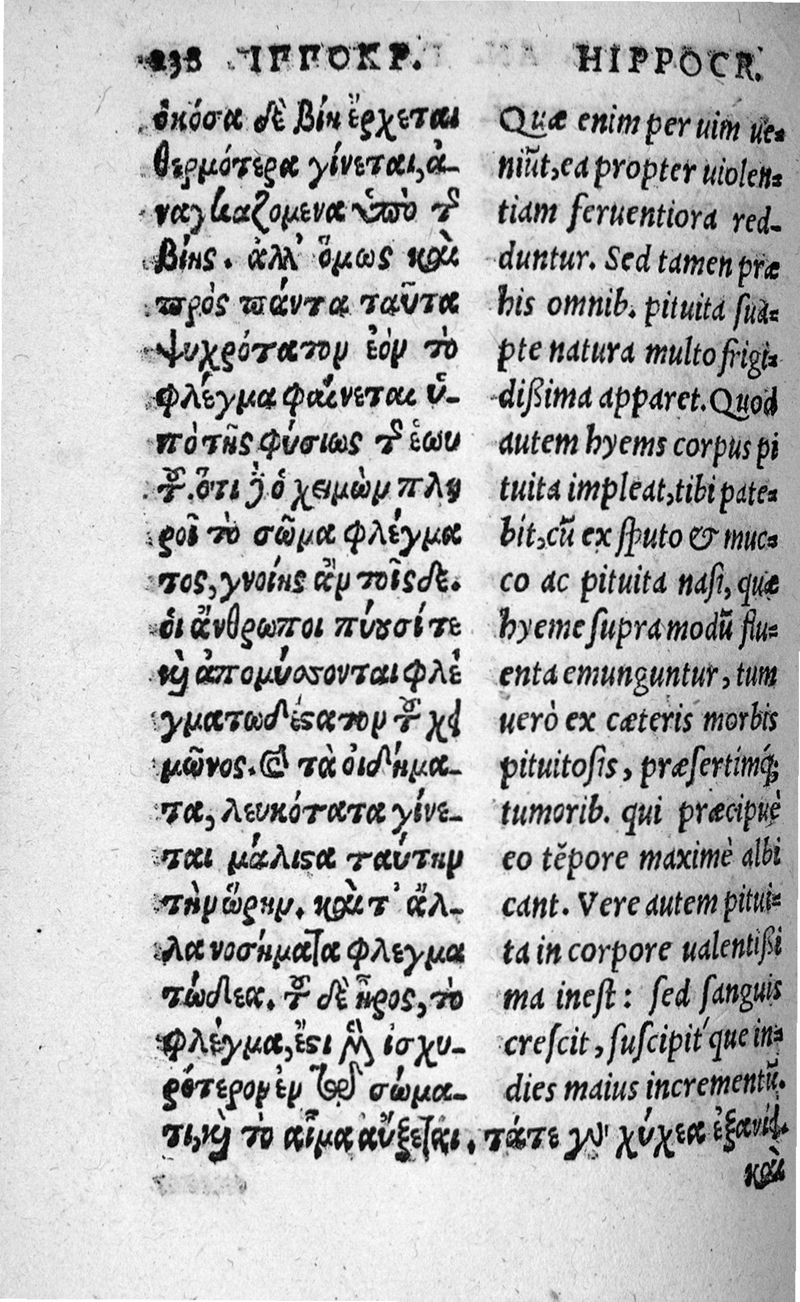 238 ΙΠΠΟΚΡ.
ὁκόσα δὲ βίη ἔρχεται
θερμότερα γίνεται, ἀ-
ναγκαζομενα ὑπὸ τῆ
βίης. ἀλλ' ὅμως καὶ
πρὸς πάντα ταῦτα
ψυχρότατον ἐὸν τὸ
φλέγμα φαίνεται ὑ-
πὸ τῆς φύσιως τῆ ἑωυ
τῦ. ὅτι δὲ ὁ χειμὼν πλη
ροῖ τὸ σῶμα φλέγμα
τος, γνοίης ἂν τοῖςδε.
οἱ ἄνθρωποι πύουσί τε
καὶ ἀπομύσσονται φλε
γματωδέστατον τῦ χει
μῶνος. καὶ τὰ οἰδήμα-
τα, λευκότατα γίνε-
ται μάλιστα ταύτην
τὴν ὥρην. καὶ τ' ἄλ-
λα νοσήματα φλεγμα
τώδεα. τῦ δὲ ἦρος, τὸ
φλέγμα, ἔτι μὲν ἰσχυ-
ρότερον ἐν τῷ σώμα-
τι, καὶ τὸ αἷμα αὔξεται. τά τε γὰρ χύχεα ἐξανίει.
καὶ
HIPPOCR.
Quæ enim per uim ue-
niũt, ea propter uiolen-
tiam feruentiora red-
duntur. Sed tamen præ
his omnib. pituita sua-
pte natura multo frigi-
dißima apparet. Quod
autem hyems corpus pi
tuita impleat, tibi pate-
bit, cũ ex sputo & muc-
co ac pituita nasi, quæ
hyeme supra modũ flu-
enta emunguntur, tum
uerò ex cæteris morbis
pituitosis, præsertimq́;
tumorib. qui præcipuè
eo tẽpore maximè albi
cant. Vere autem pitui-
ta in corpore ualentißi
ma inest: sed sanguis
crescit, suscipit'que in-
dies maius incrementũ.